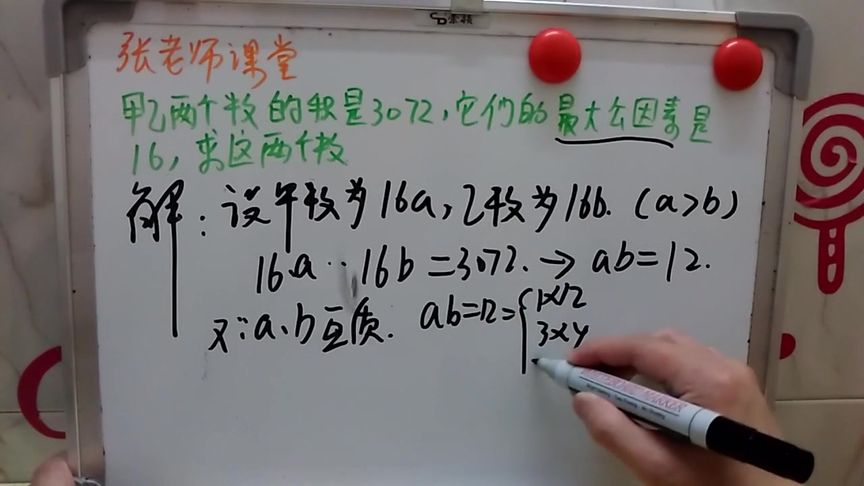 张老师课堂
甲乙两个数的积是3072,它们的最大公因素是
16,求这两个数
解:设甲数为16a,乙数为16b.(a>b)
16a·16b=3072.→ab=12.
又∵a、b互质. ab=12={1×12
3×4